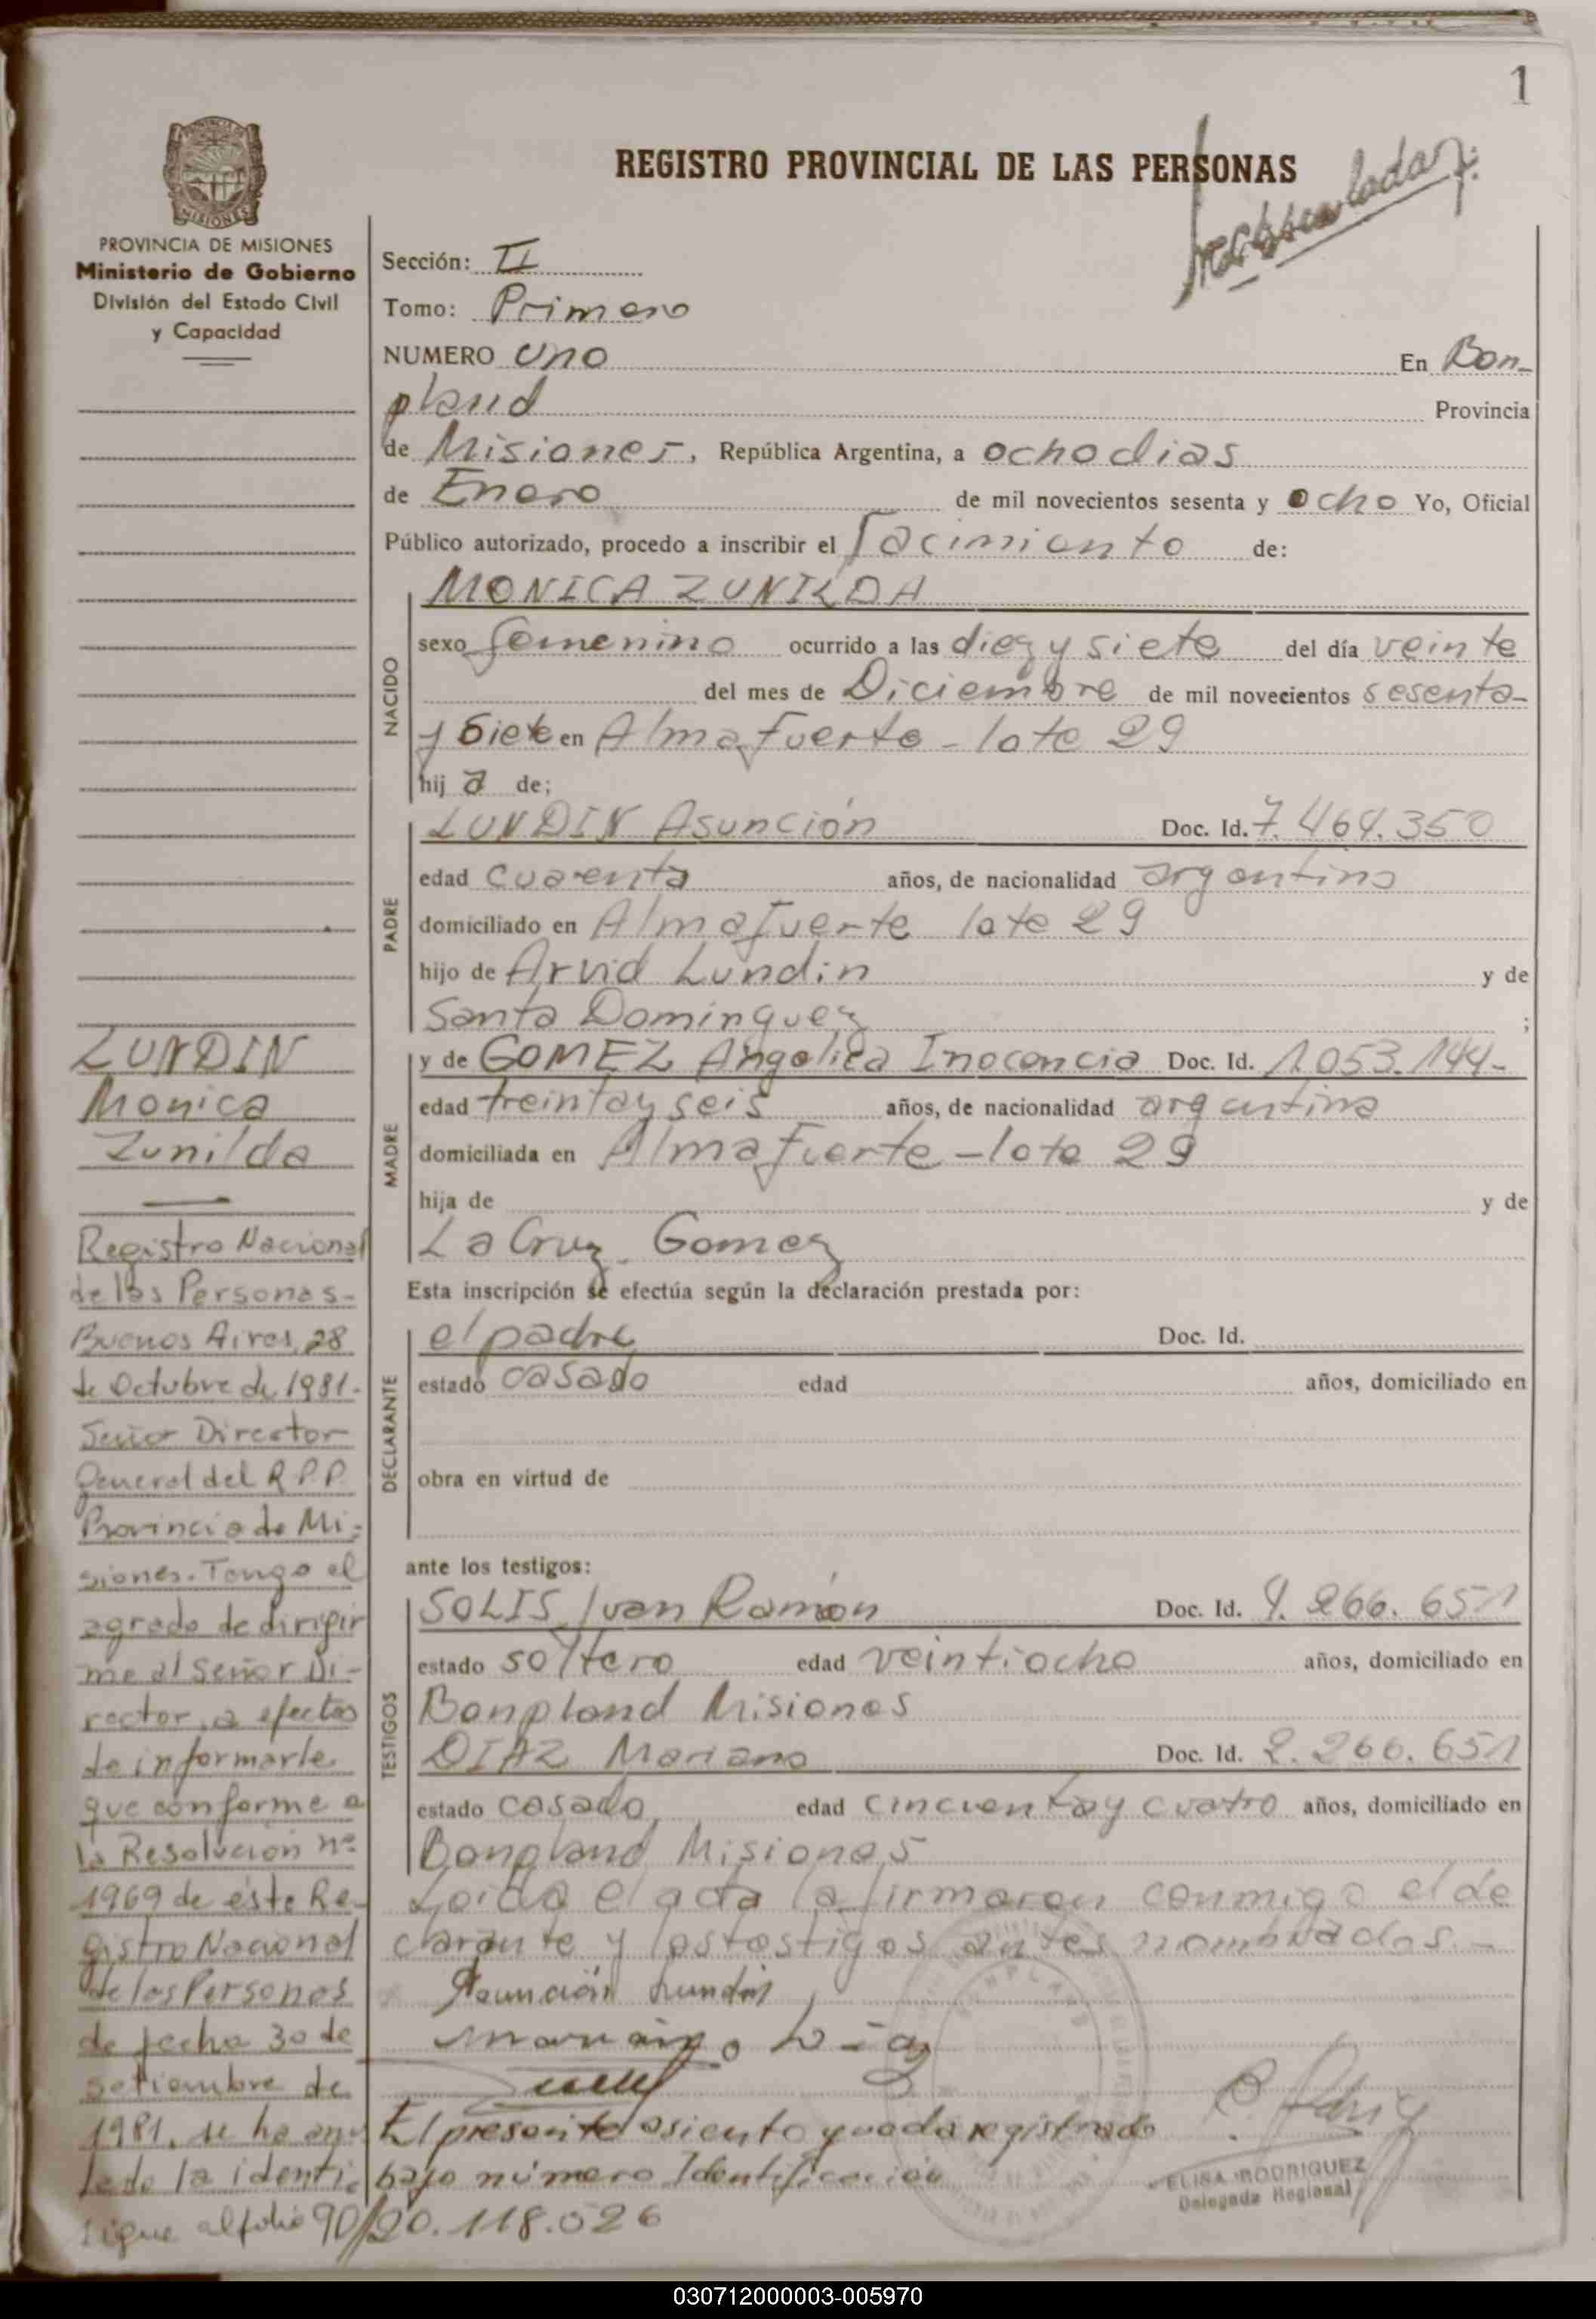 1
REGISTRO PROVINCIAL DE LAS PERSONAS
MISIONES
PROVINCIA DE MISIONES
Ministerio de Gobierno
División del Estado Civil
y Capacidad
Sección: II
Tomo: Primero
NUMERO uno En Bon-
pland Provincia
de Misiones, República Argentina, a ocho dias
de Enero de mil novecientos sesenta y ocho Yo, Oficial
Público autorizado, procedo a inscribir el Nacimiento de:
NACIDO
MONICA ZUNILDA
sexo femenino ocurrido a las diez y siete del día veinte
del mes de Diciembre de mil novecientos sesenta
y siete en Almafuerte - lote 29
hij a de;
PADRE
LUNDIN Asunción Doc. Id. 7.464.350
edad cuarenta años, de nacionalidad argentino
domiciliado en Almafuerte lote 29
hijo de Arvid Lundin y de
Santa Dominguez ;
MADRE
y de GOMEZ Angelica Inocencia Doc. Id. 1.053.144-
edad treinta y seis años, de nacionalidad argentina
domiciliada en Almafuerte - lote 29
hija de y de
La Cruz Gomez
Esta inscripción se efectúa según la declaración prestada por:
DECLARANTE
el padre Doc. Id.
estado casado edad años, domiciliado en
obra en virtud de
ante los testigos:
TESTIGOS
SOLIS Ivan Ramón Doc. Id. 266.651
estado soltero edad veintiocho años, domiciliado en
Bonpland Misiones
DIAZ Mariano Doc. Id. 2.266.651
estado casado edad cincuenta y cuatro años, domiciliado en
Bonpland Misiones
Leida el acta la firmaron conmigo el de
clarante y los testigos antes nombrados.-
Asunción Lundin
Mariano Diaz
El presente asiento queda registrado
bajo número Identificación
20.118.026
ELISA RODRIGUEZ
Delegada Regional
LUNDIN
Monica
Zunilda
Registro Nacional
de las Personas-
Buenos Aires, 28
de Octubre de 1981.
Señor Director
General del R.P.P.
Provincia de Mi-
siones. Tengo el
agrado de dirigir
me al Señor Di-
rector, a efectos
de informarle
que conforme a
la Resolución nº
1969 de éste Re-
gistro Nacional
de las Personas
de fecha 30 de
setiembre de
1981, se ha anu
lado la identi
sigue al folio 90
030712000003-005970